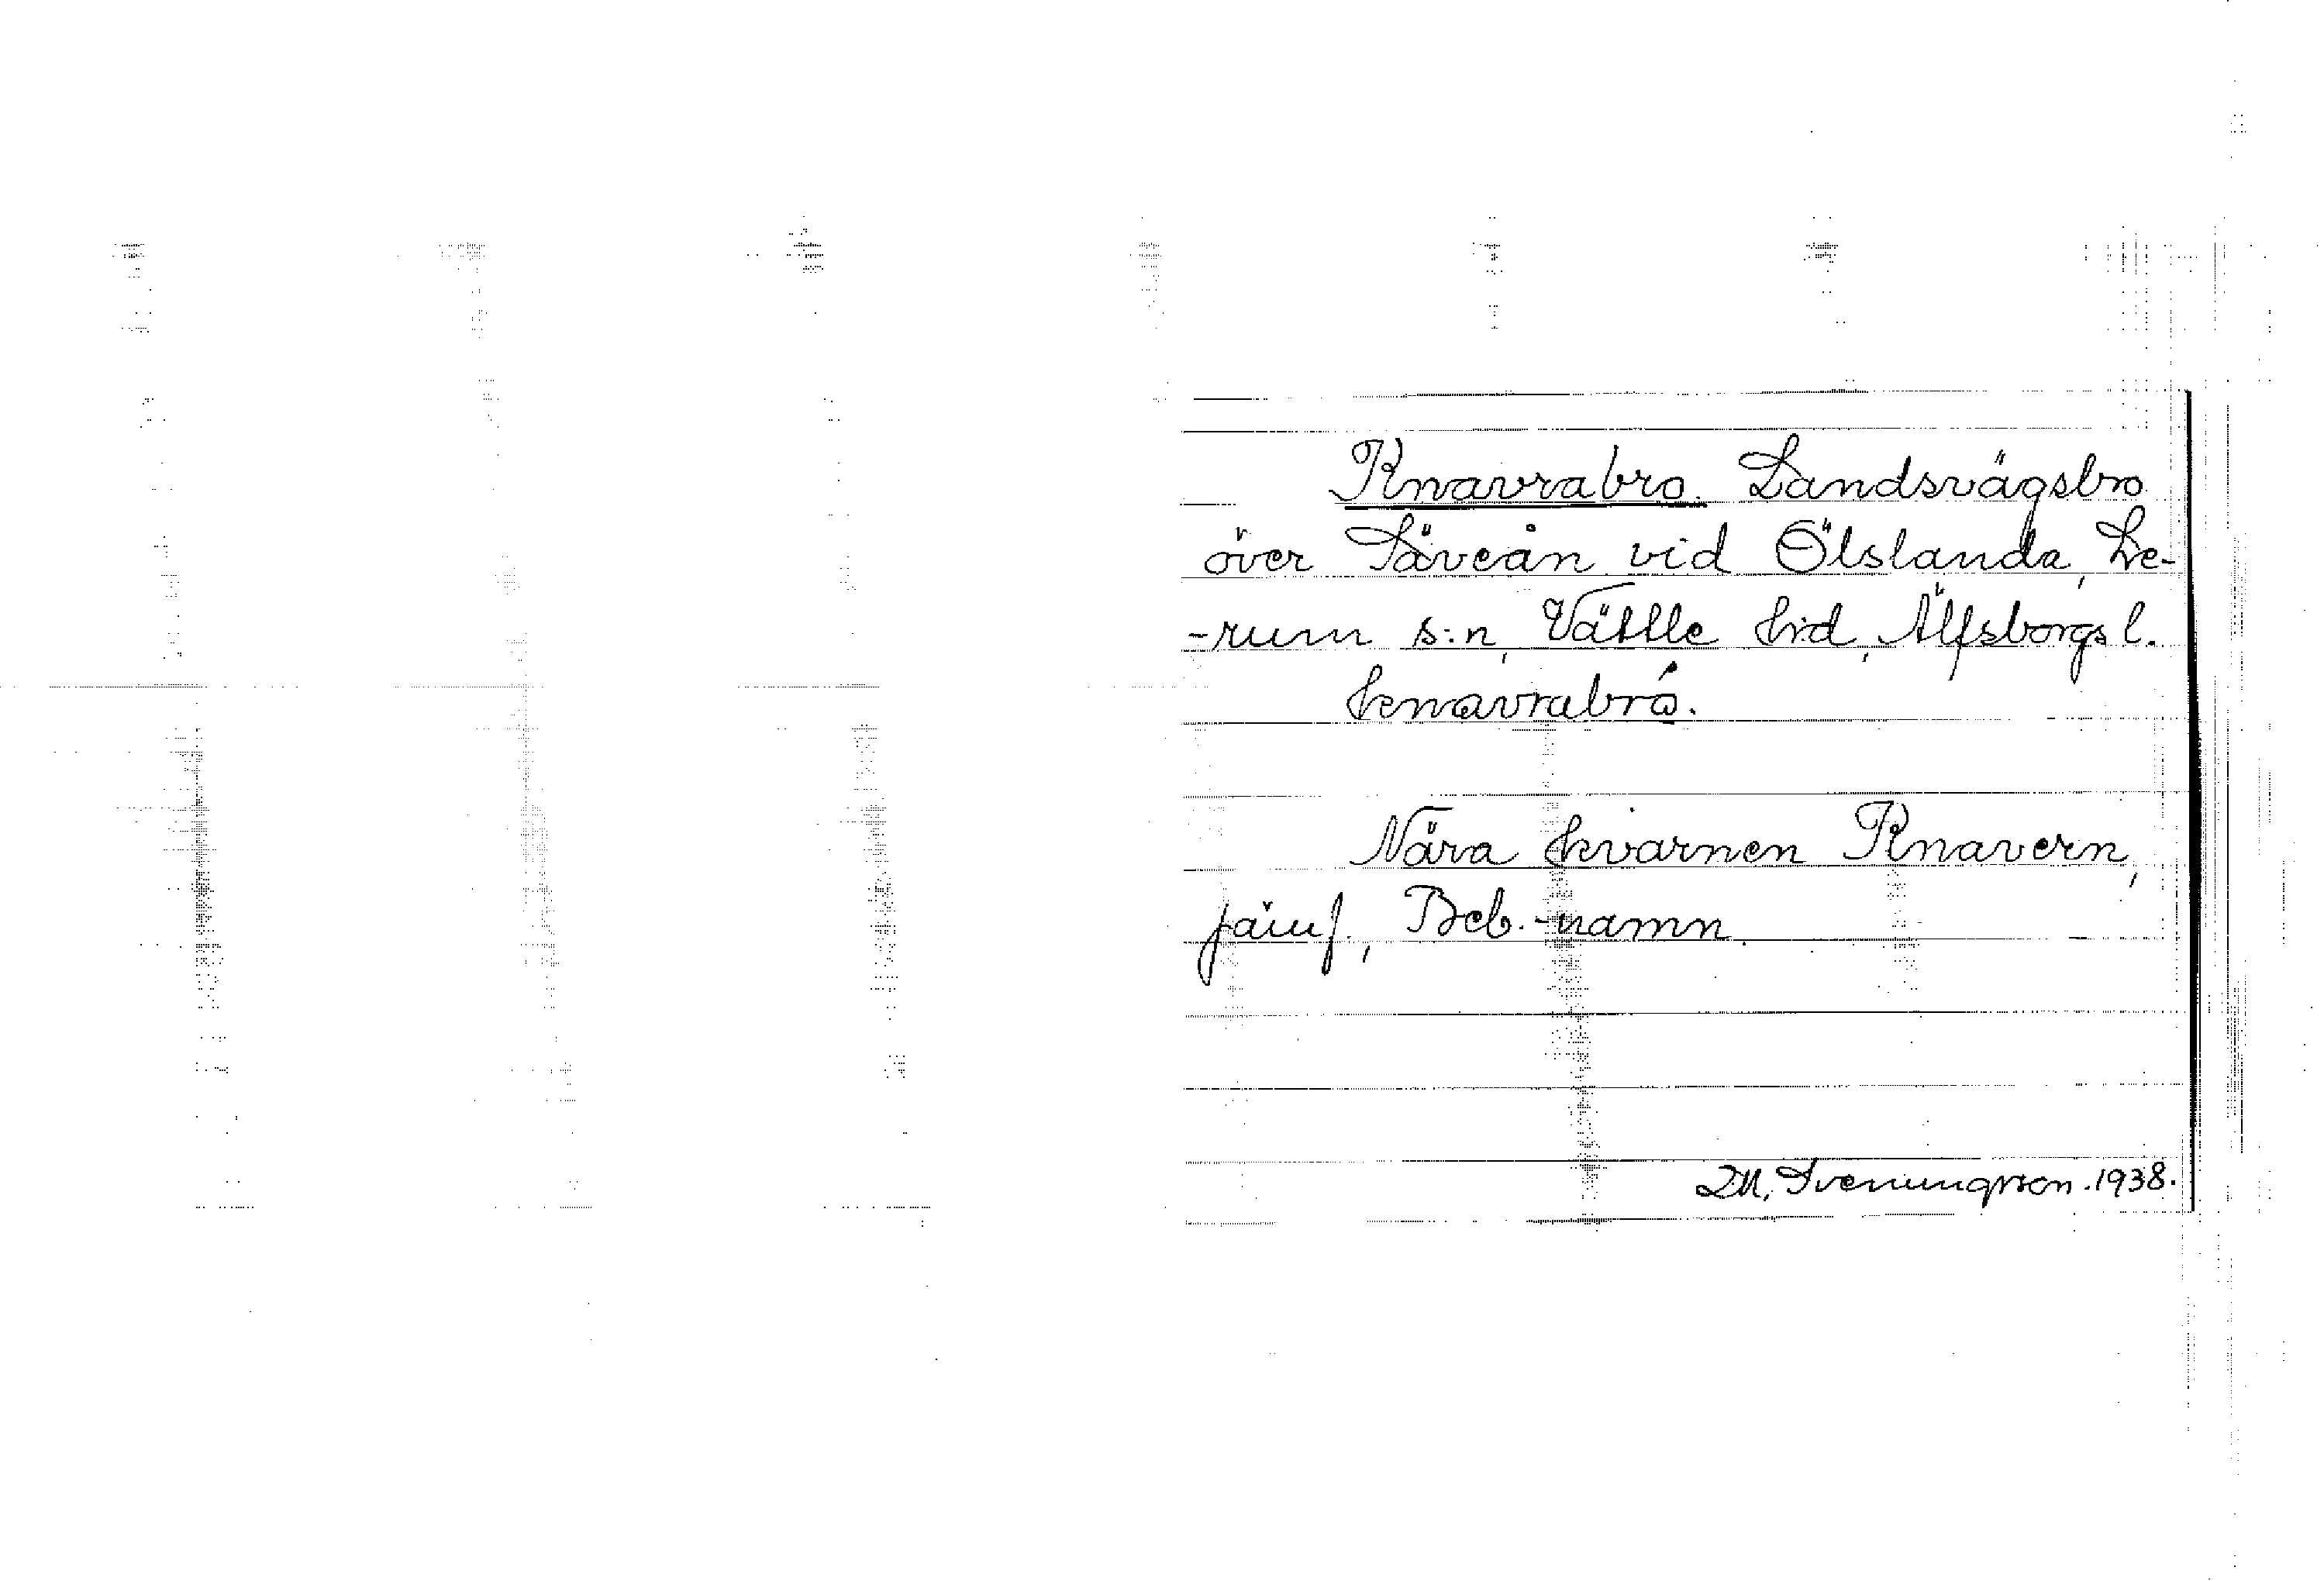 Knavrabro. Landsvägsbro
över Säveån vid Ölslanda, Le-
-rum s:n, Vättle hrd, Älfsborgs l.
knavrabró.
Nära kvarnen Knavern,
jämf., Beb.-namn.
D.M. Sveningsson. 1938.